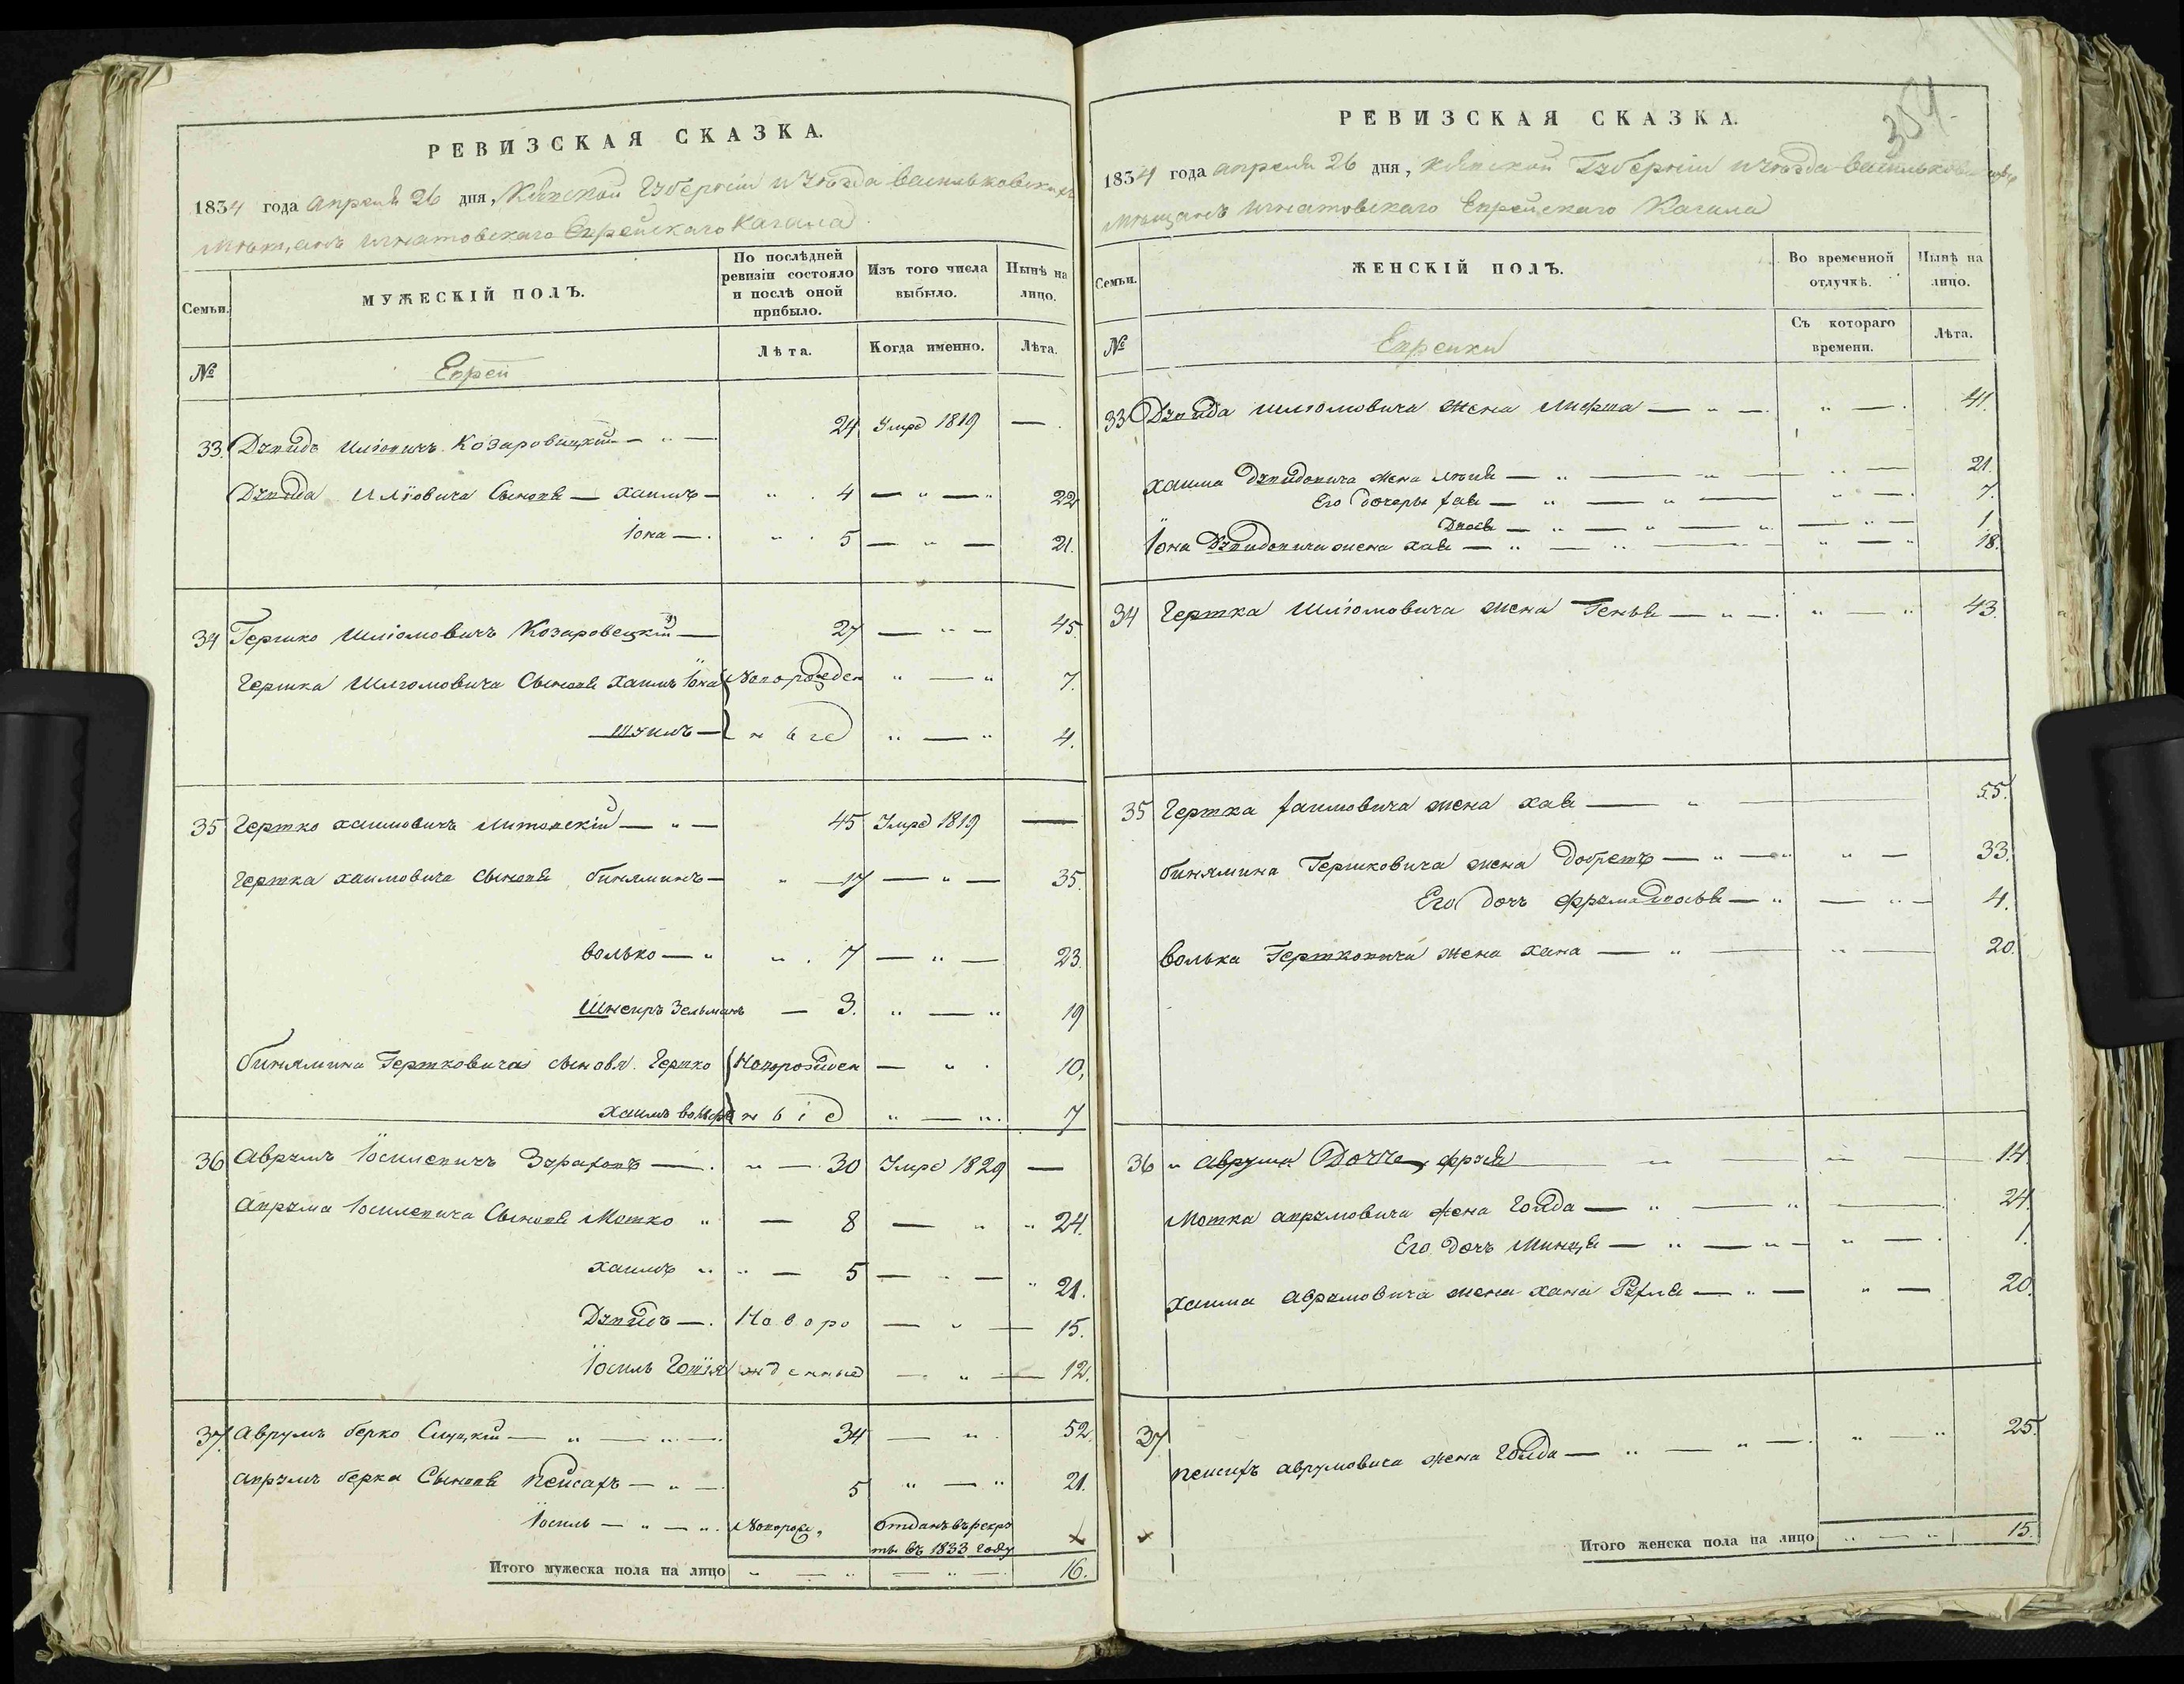 РЕВИЗСКАЯ СКАЗКА.
1834 года апреля 26 дня, Кіевской Губерніи и уѣзда васильковскихъ
мѣщанъ игнатовскаго Еврейскаго Кагала
Семьи.
МУЖЕСКІЙ ПОЛЪ.
По послѣдней ревизіи состояло и послѣ оной прибыло.
Изъ того числа выбыло.
Нынѣ на лицо.
№
Евреи
Лѣта.
Когда именно.
Лѣта.
33. Дувидъ Шліовичъ Козаровицкій — 24 Умре 1819 —
Дувида Шліовича Сыновя — хаимъ — 4 — 22
Іона — 5 — 21.
34 Гершко Шліомовичъ Козаровецкій — 27 — 45.
Гершка Шлиомовича Сыновя хаимъ Іона Новорожден 7.
шуилъ — ные 4.
35 Гершко хаимовичъ литовскій — 45 Умре 1819 —
Гершка хаимовича сыновя биняминъ — 17 — 35.
волько — 7 — 23.
Шнеиръ Зельманъ — 3. 19
бинямина Гершковича сыновя. Гершко Новорожден — 10.
хаимъ вольфъ ные 7
36 Аврумъ Іосилевичъ — 30 Умре 1829 —
Аврума Іосилевича Сыновя Мотко — 8 — 24.
хаимъ — 5 — 21.
Дувидъ — Новоро — 15.
Іосиль жденные — 12.
37. Аврумъ берко — 34 — 52.
Аврумъ берка Сыновя пейсахъ — 5 — 21.
Іосиль — Новорож. Отданъ въ рекру
ты въ 1833 году
Итого мужеска пола на лицо 16.
354
РЕВИЗСКАЯ СКАЗКА.
1834 года апреля 26 дня, Кіевской Губерніи и уѣзда васильковскихъ
мѣщанъ игнатовскаго Еврейскаго Кагала
Семьи.
ЖЕНСКІЙ ПОЛЪ.
Во временной отлучкѣ.
Нынѣ на лицо.
№
Еврейки
Съ котораго времени.
Лѣта.
33 Дувида шліомовича жена — 41.
хаима Дувидовича жена — 21.
Его дочери хая — 7.
Двося — 1.
Іона Дувидовича жена хая — 18.
34 Гершка Шліомовича жена Геня — 43.
35 Гершка хаимовича жена хая — 55.
бинямина Гершковича жена Добрешъ — 33.
Его дочъ фрумадвося — 4.
волька Гершковича жена хана — 20.
36 Аврума Дочче — 14
Мотка аврумовича жена Гольда — 24.
Его дочъ — 1.
хаима Аврумовича жена хана Рухля — 20.
37
пейсихъ аврумовича жена Гольда — 25.
Итого женска пола на лицо 15.